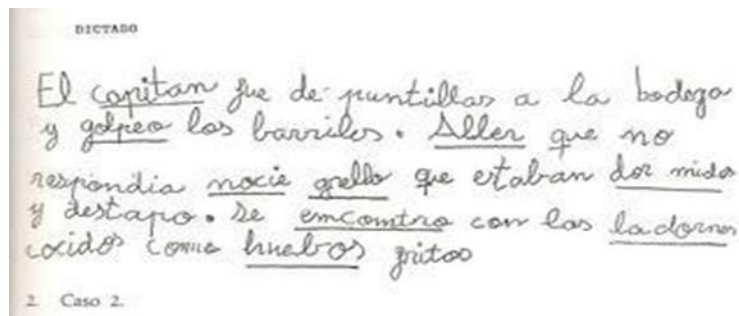 DICTADO
El capitan fue de puntillas a la bodega
y golpeo los barriles. Aller que no
respondia nacie grello que estaban dor midos
y destapo. se emcomtro con los ladornes
coxidos como huebos fritos
2. Caso 2.